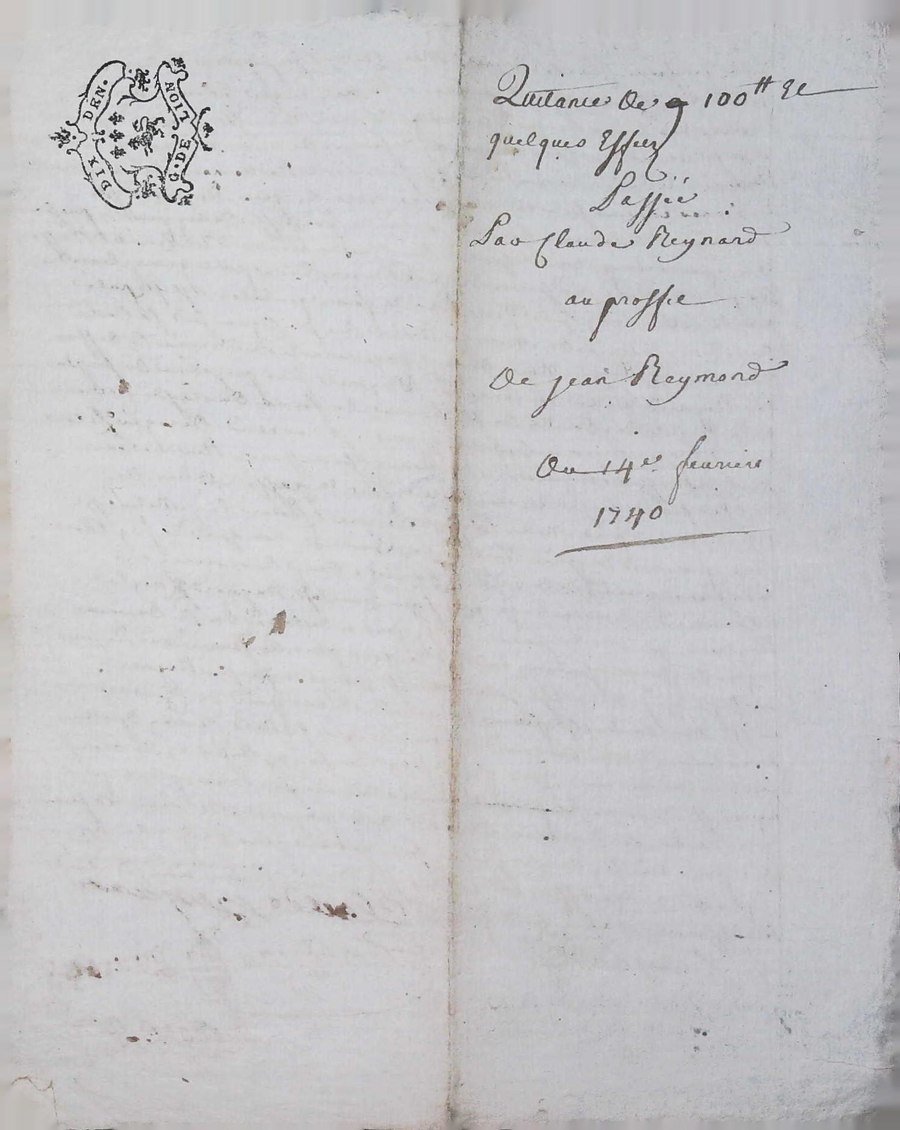 DIX DEN.
G. DE LION
Quitance de 100tt Et
quelques Effez
Passée
Par Claude Reynard
au proffit
de jean Reymond
Du 14e fevrier
1740